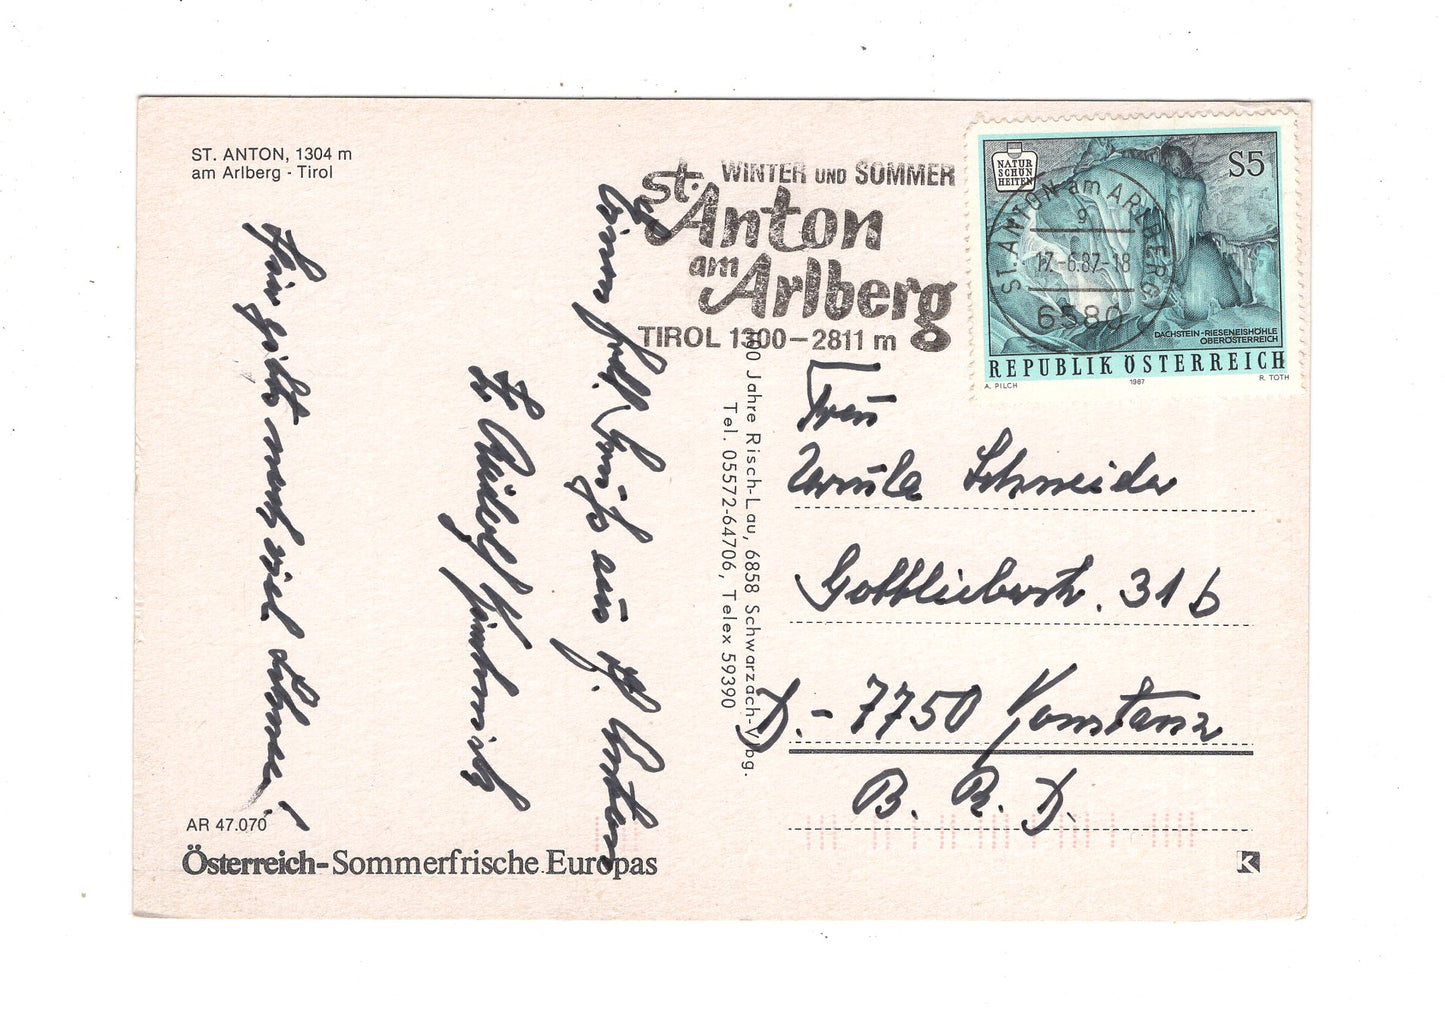 ST. ANTON, 1304 m
am Arlberg - Tirol
WINTER UND SOMMER
St. Anton
am Arlberg
TIROL 1300–2811 m
NATUR
SCHÖN
HEITEN
S5
ST. ANTON am ARLBERG
9
17.-6.87-18
6580
DACHSTEIN-RIESENEISHÖHLE
OBERÖSTERREICH
REPUBLIK ÖSTERREICH
A. PILCH 1987 R. TOTH
einen
Gruß aus St. Anton
Hier gibt noch viel Schnee!
Jahre Risch-Lau, 6858 Schwarzach-Vbg.
Tel. 05572-64706, Telex 59390
Frau
Ursula Schneider
Gottlieberstr. 31 b
D.-7750 Konstanz
B. R. D.
AR 47.070
Österreich-Sommerfrische Europas
K